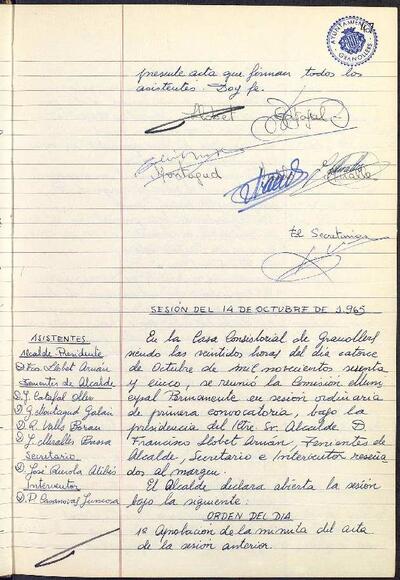 AYUNTAMIENTO
GRANOLLERS
presente acta que firman todos los
asistentes. Doy fe.
Llobet
Catafal
Montagud
El Secretario
SESIÓN DEL 14 DE OCTUBRE DE 1.965
ASISTENTES
Alcalde-Presidente
D. Fco. Llobet Arnán
Tenientes de Alcalde
D. J. Catafal Oller
D. G. Montagud Galán
D. R. Valls
D. J. Maralles Bassa
Secretario
D. José Ruiola
Interventor
D. P. Casanovas
En la Casa Consistorial de Granollers
siendo las veintidos horas del dia catorce
de Octubre de mil novecientos sesenta
y cinco, se reunió la Comisión Muni
cipal Permanente en sesión ordinaria
de primera convocatoria, bajo la
presidencia del Iltre. Sr. Alcalde D.
Francisco Llobet Arnán, Tenientes de
Alcalde, Secretario e Interventor reseña
dos al margen.
El Alcalde declara abierta la sesión
bajo la siguiente:
ORDEN DEL DIA
1º Aprobación de la minuta del acta
de la sesión anterior.